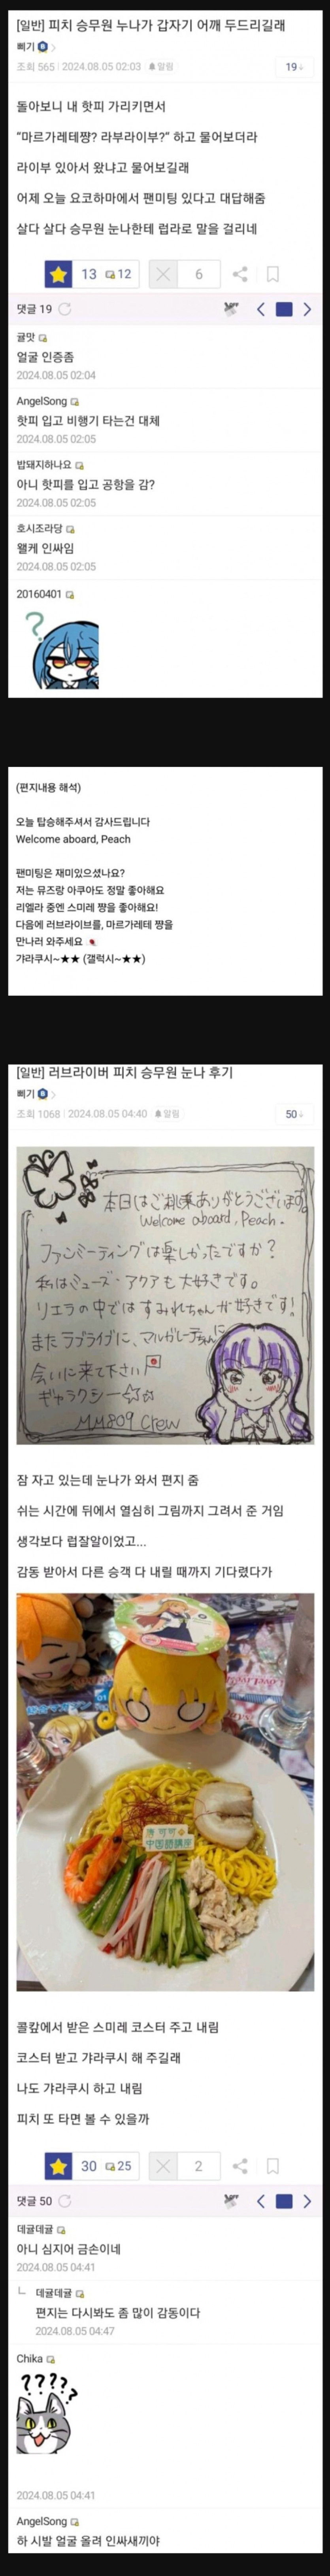 [일반] 피치 승무원 누나가 갑자기 어깨 두드리길래
삐기
조회 565 | 2024.08.05 02:03 알림
19
돌아보니 내 핫피 가리키면서
“마르가레테쨩? 라부라이부?” 하고 물어보더라
라이부 있어서 왔냐고 물어보길래
어제 오늘 요코하마에서 팬미팅 있다고 대답해줌
살다 살다 승무원 눈나한테 럽라로 말을 걸리네
13 12 6
댓글 19
귤맛
얼굴 인증좀
2024.08.05 02:04
AngelSong
핫피 입고 비행기 타는건 대체
2024.08.05 02:05
밥돼지하나요
아니 핫피를 입고 공항을 감?
2024.08.05 02:05
호시조라당
왤케 인싸임
2024.08.05 02:05
20160401
?
(편지내용 해석)
오늘 탑승해주셔서 감사드립니다
Welcome aboard, Peach
팬미팅은 재미있으셨나요?
저는 뮤즈랑 아쿠아도 정말 좋아해요
리엘라 중엔 스미레 쨩을 좋아해요!
다음에 러브라이브를, 마르가레테 쨩을
만나러 와주세요 🇯🇵
갸라쿠시~★★ (갤럭시~★★)
[일반] 러브라이버 피치 승무원 눈나 후기
삐기
조회 1068 | 2024.08.05 04:40 알림
50
本日はご搭乗ありがとうございます。
Welcome aboard, Peach.
ファンミーティングは楽しかったですか?
私はミューズ・アクアも大好きです。
リエラの中ではすみれちゃんが好きです!
またラブライブに、マルガレーテちゃんに
会いに来て下さい
ギャラクシー☆☆
MM809 crew
잠 자고 있는데 눈나가 와서 편지 줌
쉬는 시간에 뒤에서 열심히 그림까지 그려서 준 거임
생각보다 럽잘알이었고...
감동 받아서 다른 승객 다 내릴 때까지 기다렸다가
中国語講座
콜캎에서 받은 스미레 코스터 주고 내림
코스터 받고 갸라쿠시 해 주길래
나도 갸라쿠시 하고 내림
피치 또 타면 볼 수 있을까
30 25 2
댓글 50
데귤데귤
아니 심지어 금손이네
2024.08.05 04:41
데귤데귤
편지는 다시봐도 좀 많이 감동이다
2024.08.05 04:47
Chika
????
2024.08.05 04:41
AngelSong
하 시발 얼굴 올려 인싸새끼야